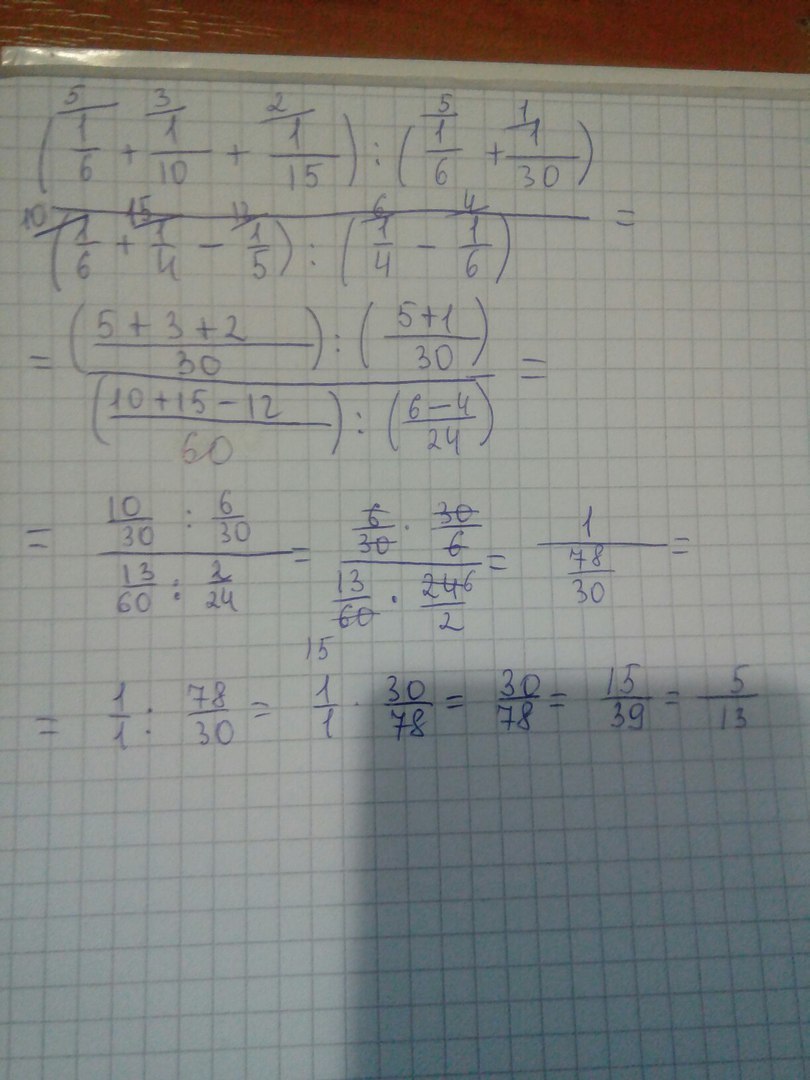 5 3 2 5 1
(1/6 + 1/10 + 1/15) : (1/6 + 1/30)
10 15 12 6 4 =
(1/6 + 1/4 − 1/5) : (1/4 − 1/6)
= ((5+3+2)/30) : ((5+1)/30) =
((10+15−12)/60) : ((6−4)/24)
= (10/30 : 6/30)/(13/60 : 2/24) = (6/30 · 30/6)/(13/60 · 24 6/2) = 1/(78/30) =
15
= 1/1 : 78/30 = 1/1 · 30/78 = 30/78 = 15/39 = 5/13